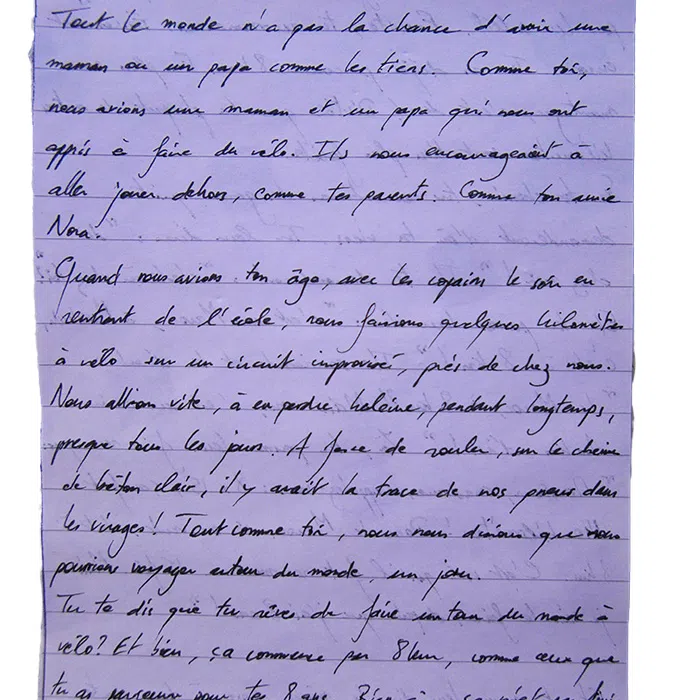 Tout le monde n'a pas la chance d'avoir une
maman ou un papa comme les tiens. Comme toi,
nous avions une maman et un papa qui nous ont
appris à faire du vélo. Ils nous encourageaient à
aller jouer dehors, comme tes parents. Comme ton amie
Nora.
Quand nous avions ton âge, avec les copains le soir en
rentrant de l'école, nous faisions quelques kilomètres
à vélo sur un circuit improvisé, près de chez nous.
Nous allions vite, à en perdre haleine, pendant longtemps,
presque tous les jours. A force de rouler, sur le chemin
de béton clair, il y avait la trace de nos pneus dans
les virages ! Tout comme toi, nous nous disions que nous
pourrions voyager autour du monde, un jour.
Tu te dis que tu rêves de faire un tour du monde à
vélo ? Et bien, ça commence par 8 km, comme ceux que
tu as parcouru pour tes 8 ans. Bien